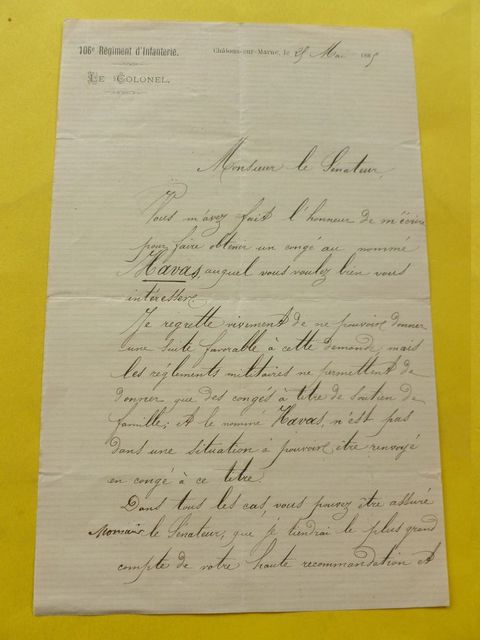 106e Régiment d'Infanterie.
Châlons-sur-Marne, le 25 Mai 1885
LE COLONEL.
Monsieur le Sénateur,
Vous m'avez fait l'honneur de m'écrire
pour faire obtenir un congé au nommé
Havas, auquel vous voulez bien vous
intéresser.
Je regrette vivement de ne pouvoir donner
une suite favorable à cette demande, mais
les réglements militaires ne permettent de
donner que des congés à titre de soutien de
famille; et le nommé Havas, n'est pas
dans une situation à pouvoir être renvoyé
en congé à ce titre.
Dans tous les cas, vous pouvez être assuré
le Sénateur, que je tiendrai le plus grand
compte de votre haute recommandation et